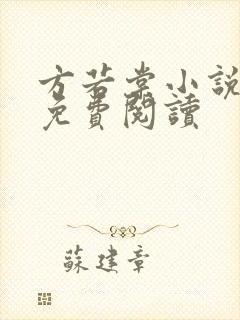 方若棠小說
免費閱讀
蘇建章